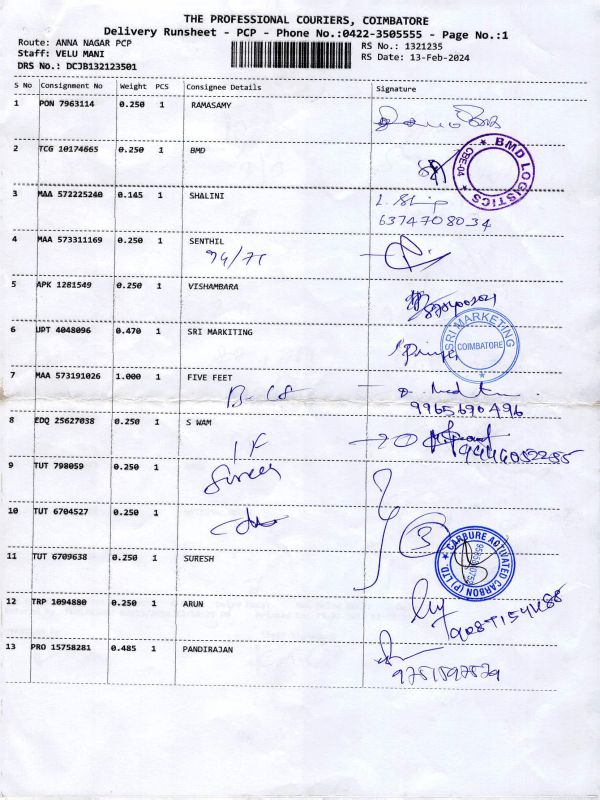 THE PROFESSIONAL COURIERS, COIMBATORE
Delivery Runsheet - PCP - Phone No.:0422-3505555 - Page No.:1
Route: ANNA NAGAR PCP
RS No.: 1321235
Staff: VELU MANI
RS Date: 13-Feb-2024
DRS No.: DCJB132123501
S No Consignment No Weight PCS Consignee Details Signature
1 PON 7963114 0.250 1 RAMASAMY
2 TCG 10174665 0.250 1 BMD
BMD LOGISTICS CBE-04
3 MAA 572225240 0.145 1 SHALINI
6374708034
4 MAA 573311169 0.250 1 SENTHIL
5 APK 1281549 0.250 1 VISHAMBARA
6 UPT 4048096 0.470 1 SRI MARKITING
SRI MARKETING COIMBATORE
7 MAA 573191026 1.000 1 FIVE FEET
9965690496
8 EDQ 25627038 0.250 1 S WAM
9 TUT 798059 0.250 1
10 TUT 6704527 0.250 1
3
CARBURE ACTIVATED CARBON (P) LTD
11 TUT 6709638 0.250 1 SURESH
12 TRP 1094880 0.250 1 ARUN
13 PRO 15758281 0.485 1 PANDIRAJAN